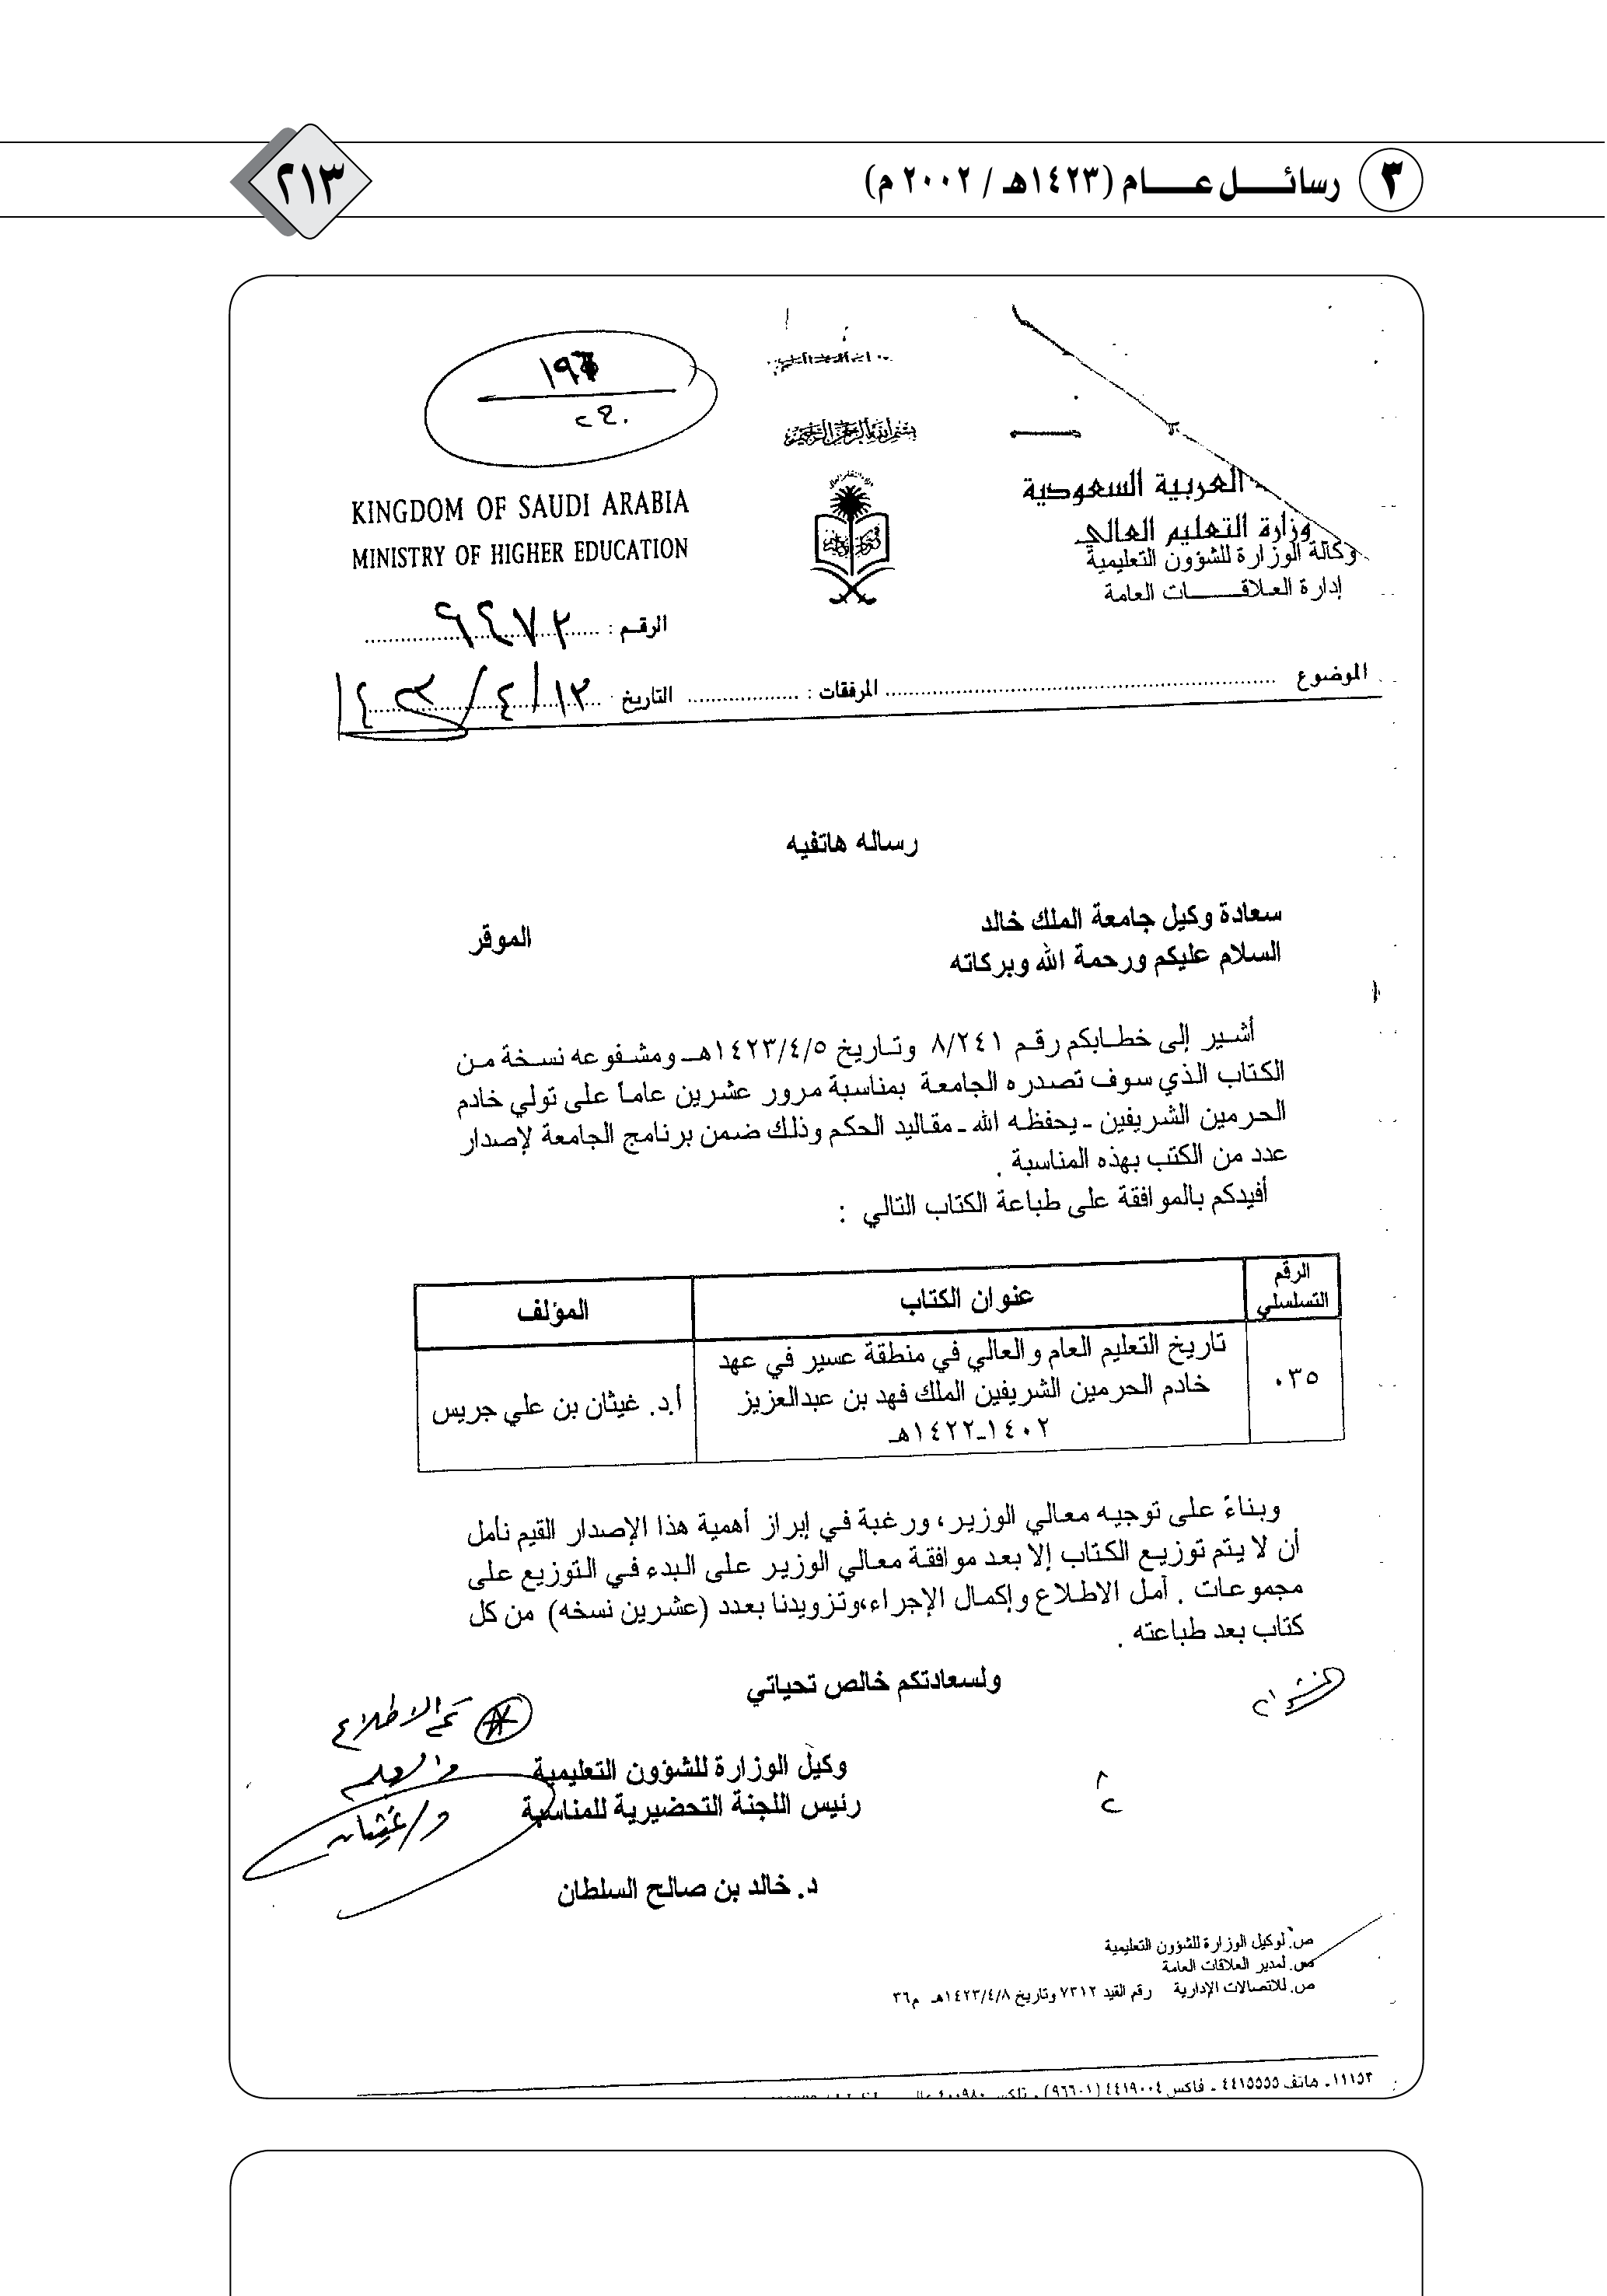 ٣ رسائل عام (١٤٢٣هـ / ٢٠٠٢م)
٢١٣
بسم الله الرحمن الرحيم
العربية السعودية
وزارة التعليم العالي
وكالة الوزارة للشؤون التعليمية
إدارة العلاقات العامة
KINGDOM OF SAUDI ARABIA
MINISTRY OF HIGHER EDUCATION
الرقم : ٦٤٧٢
الموضوع المرفقات : التاريخ ١٣/٤/١٤٢٣
رساله هاتفيه
سعادة وكيل جامعة الملك خالد الموقر
السلام عليكم ورحمة الله وبركاته
أشير إلى خطابكم رقم ٨/٢٤١ وتاريخ ١٤٢٣/٤/٥هـ ومشفوعه نسخة من
الكتاب الذي سوف تصدره الجامعة بمناسبة مرور عشرين عاماً على تولي خادم
الحرمين الشريفين ـ يحفظه الله ـ مقاليد الحكم وذلك ضمن برنامج الجامعة لإصدار
عدد من الكتب بهذه المناسبة .
أفيدكم بالموافقة على طباعة الكتاب التالي :
الرقم التسلسلي عنوان الكتاب المؤلف
٠٣٥ تاريخ التعليم العام والعالي في منطقة عسير في عهد
خادم الحرمين الشريفين الملك فهد بن عبدالعزيز
١٤٠٢ـ١٤٢٢هـ
أ.د. غيثان بن علي جريس
وبناءً على توجيه معالي الوزير، ورغبة في إبراز أهمية هذا الإصدار القيم نأمل
أن لا يتم توزيع الكتاب إلا بعد موافقة معالي الوزير على البدء في التوزيع على
مجموعات . آمل الاطلاع وإكمال الإجراء،وتزويدنا بعدد (عشرين نسخه) من كل
كتاب بعد طباعته .
ولسعادتكم خالص تحياتي
تم الاطلاع
والعلم
د/غيثان
وكيل الوزارة للشؤون التعليمية
رئيس اللجنة التحضيرية للمناسبة
د. خالد بن صالح السلطان
ص. لوكيل الوزارة للشؤون التعليمية
ص. لمدير العلاقات العامة
ص. للاتصالات الإدارية رقم القيد ٧٣١٢ وتاريخ ١٤٢٣/٤/٨هـ م٣٦
١١١٥٣ـ هاتف ٤٤١٥٥٥٥ ـ فاكس ٤٤١٩٠٠٤ (٩٦٦٠١) ـ تلكس ٤٠٠٩٨٠